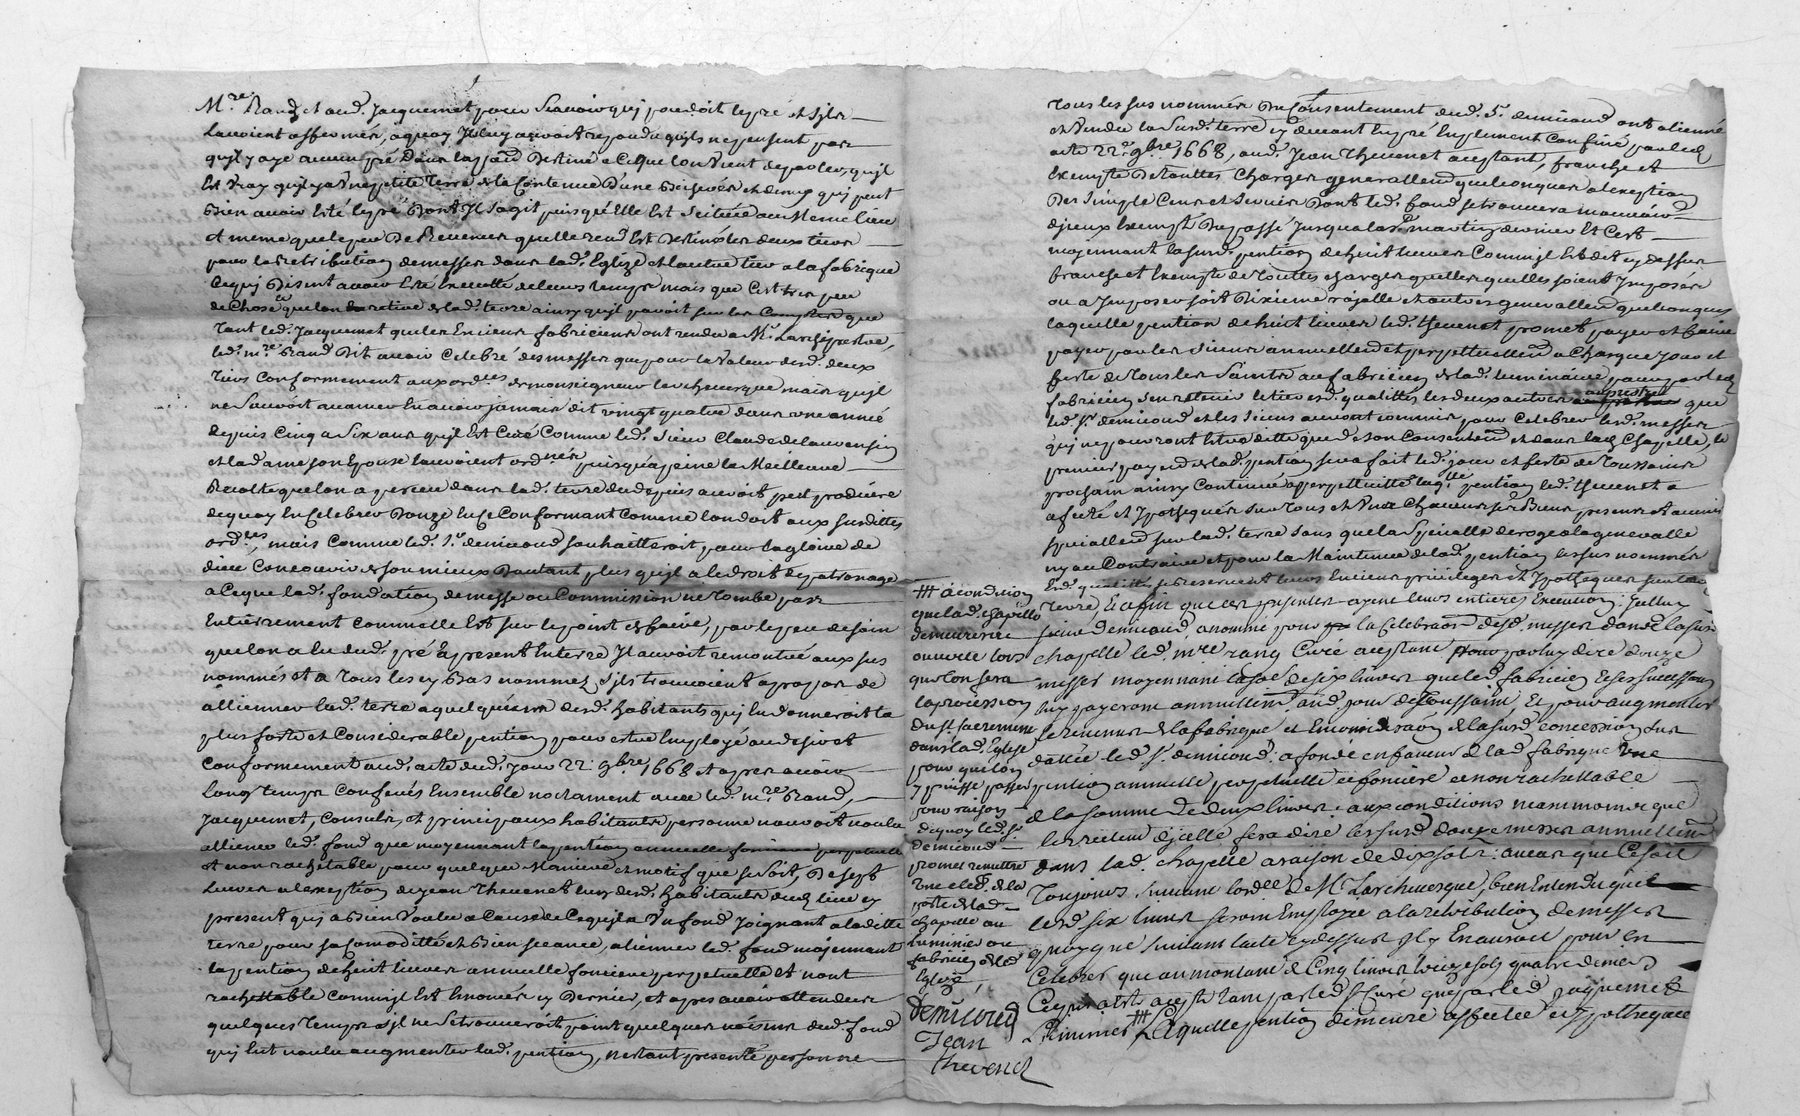 Mre Rand et aud. Jacquemet pour scavoir qui poucedoit le pré et s'ils
lavoient affermés, a quoy Il luy auroit repondu quils ne pensent pas
quil y aye aucun pré dans la paroisse destiné a ce que lon vient de parler, quil
Est vray quil y a une petite terre de la Contenue d'une bicherée et demy qui peut
Bien avoir Esté le pré dont Il s'agit puis qu'Elle Est scituée au meme lieu
et meme quelque peu De Revenus quelle rend Est destiné les deux tiers
pour la retribution de messes dans lad. Eglize et lautre tiers a la fabrique
Ce qui disent avoir Esté Executé de leurs temps mais que C'est tres peu
de Chose que lon en retire de lad. terre ainsy quil paroit sur les Comptes que
tant led. Jacquemet que les Enciens fabriciens ont rendu a Mr Larchiprestre,
led. mre Rand Dit avoir Celebré des messes que pour la valeur desd. deux
tiers Conformement aux ordces de monseigneur larchevesque mais quil
ne Scavoit aucunes En avoir jamais dit vingt quatre dans une année
depuis Cinq a Six ans quil Est Curé Comme led. Sieur Claude de laurensin
et la dame son Epouse lavoient ordonnés puis qu'a peine la Meilleure
Recolte que lon a perceu dans lad. terre du depuis auroit peut produire
de quoy En Celebrer Douze En se Conformant Comme lon doit aux susdittes
ordces, mais Comme led. Sr demicoud souhaitteroit pour la gloire de
dieu Concourir de son mieux Dautant plus quil a le droit de patronage
a Ce que lad. fondation de messe ou Commission ne tombe pas
Entierement Comme elle Est sur le point de faire, par le peu de soin
que lon a eu dud. pré a present En terre Il auroit remontré aux sus
nommés et a tous les cy Bas nommez, s'ils trouvoient a propos de
alliener lad. terre a quelqu'un desd. habitants qui En donneroit la
plus forte et Considerable pention pour estre Employé au desir et
Conformement aud. acte dud. jour 22 9bre 1668 et apres avoir
Long temps Conferés Ensemble nottament avec led. mre Rand,
Jacquemet, Consuls, et principaux habitants personne nauroit voulu
alliener led. fond que moyennant la pention annuelle fonciere perpetuelle
et non rachetable pour quelque Maniere et motif que se soit, De sept
Livres a lexeption de Jean Thevenet lun desd. habitants dud. lieu cy
present qui a Bien voulu a Cause de Ce quil a un fond Joignant a la ditte
terre pour sa Comoditté et Bien seance, aliener led. fond moyennant
la pention de huit Livres annuelle fonciere perpetuelle et nont
rachettable Comme il Est Enoncés cy Dernier, et apres avoir attendus
quelques temps s'il ne se trouveroit point quelques uns dud. fond
qui Eut voulu augmenter lad. pention, nestant presenté personne
Tous les sus nommés Du Consentement dud. Sr. demicoud ont alienné
et Vendu la Susd. terre cy devant En pré Emplement Confiné par led.
acte 22e 9bre 1668, aud. Jean Thevenet aceptant, franche et
Exempte De touttes Charges generallemt quelconques a lexeption
Des Simple Cens et Servis Dont led. fond se trouvera mouvoir
dyceux Exempt Du passé Jusqua la St martin dernier Et Cest
moyennant la susd. pention de huit Livres Comme il Est dit cy dessus
franche et Exempte de touttes charges quelles quelles soient Imposés
ou a Imposer soit Dixieme rojalle et autres generallemt quelconques
laquelle pention de huit Livres led. thevenet promet payer et faire
payer par les siens annuellemt et perpetuellemt a Chasque jour et
feste de tous les Saints au fabricien de lad. luminaire pour par led.
fabricien En retenir le tiers esd. qualittés les deux autres au prestre que
led. Sr demicoud et les siens auront commis pour Celebrer lesd. messes
qui ne pourront Estre dittes que de son Consentemt et dans lad. Chapelle, le
premier payemt de lad. pention sera fait led. jour et feste de toussaint
prochain ainsy Continué a perpetuitté laqlle pention led. thevenet a
afecté et Ipothequés sur tous et Vn a Chacuns ses Biens presents et avenir
speciallemt sur lad. terre sans que la specialle deroge a la generalle
ny au Contraire et pour la Maintenue de lad. pention les sus nommés
Esd. qualittés se reservent leurs Enciens privileges et Ipotheques sur lad.
terre, Et afin que ces presentes ayent leurs entieres Execution: Il luy
sieur Demicoud, a nommé pour la Celebraon desd. messes dans la sus.
chapelle led. mre rand Curé aceptant pour par luy dire douze
messes moyennant la so. de six livres que led. fabricien et ses successeurs
luy payeront annuellemt aud. jour de toussaint, Et pour augmenter
le revenus de la fabrique et En consideraon de la susd. concession sus
datée led. Sr. demicoud a fondé en faveur de lad. fabrique Une
pention annuelle perpetuelle et fonciere et non rachettable
de la somme de deux livres: aux conditions neammoins que
les recteurs d'jcelle fera dire les susd. douze messes annuellemt
dans lad. chapelle a raison de dix sols: aucas que Ce soit
Toujours suivant lordce de Mr Larchevesque, bien Entendu que
lesd. six livres seront Employée a la retribution de messes
quoyque suivant lacte cy dessus Il y En auroit pour en
Celebrer que au montant de Cinq livres treize sols quatre deniers
Ce qui a esté accepté tant par led. Sr Curé que par led. Jaquemet
Luminier ## Laquelle pention demeure affectée et Ipothequée
## a condition
que lad. chapelle
demeurera
ouverte lors
que lon fera
la procession
du st. sacrement
dans lad. Eglise
pour que lon
y puisse passer
pour raison
de quoy led. Sr.
demicoud
promet remettre
une clef de la
porte de lad.
chapelle au
luminier ou
fabricien de lad.
Eglize,
Demicoud
Jean
thevenet